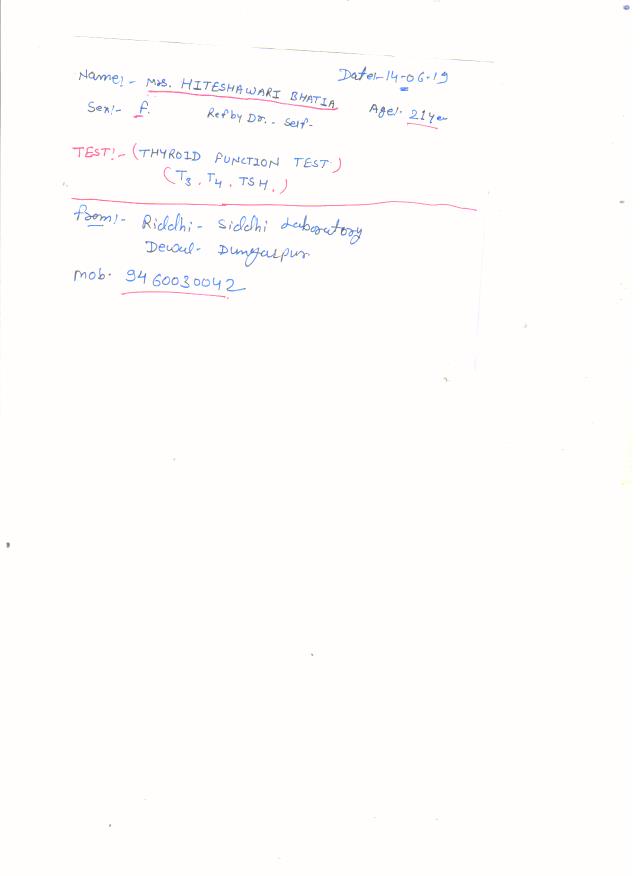 Date:- 14-06-19
Name:- Mrs. HITESHAWARI BHATIA
Age:- 21 Year
Sex:- F. Ref by Dr.. Self-
TEST:- (THYROID FUNCTION TEST)
(T3, T4, TSH.)
From:- Riddhi- Siddhi Laboratory
Dewal- Dungarpur
Mob. 9460030042